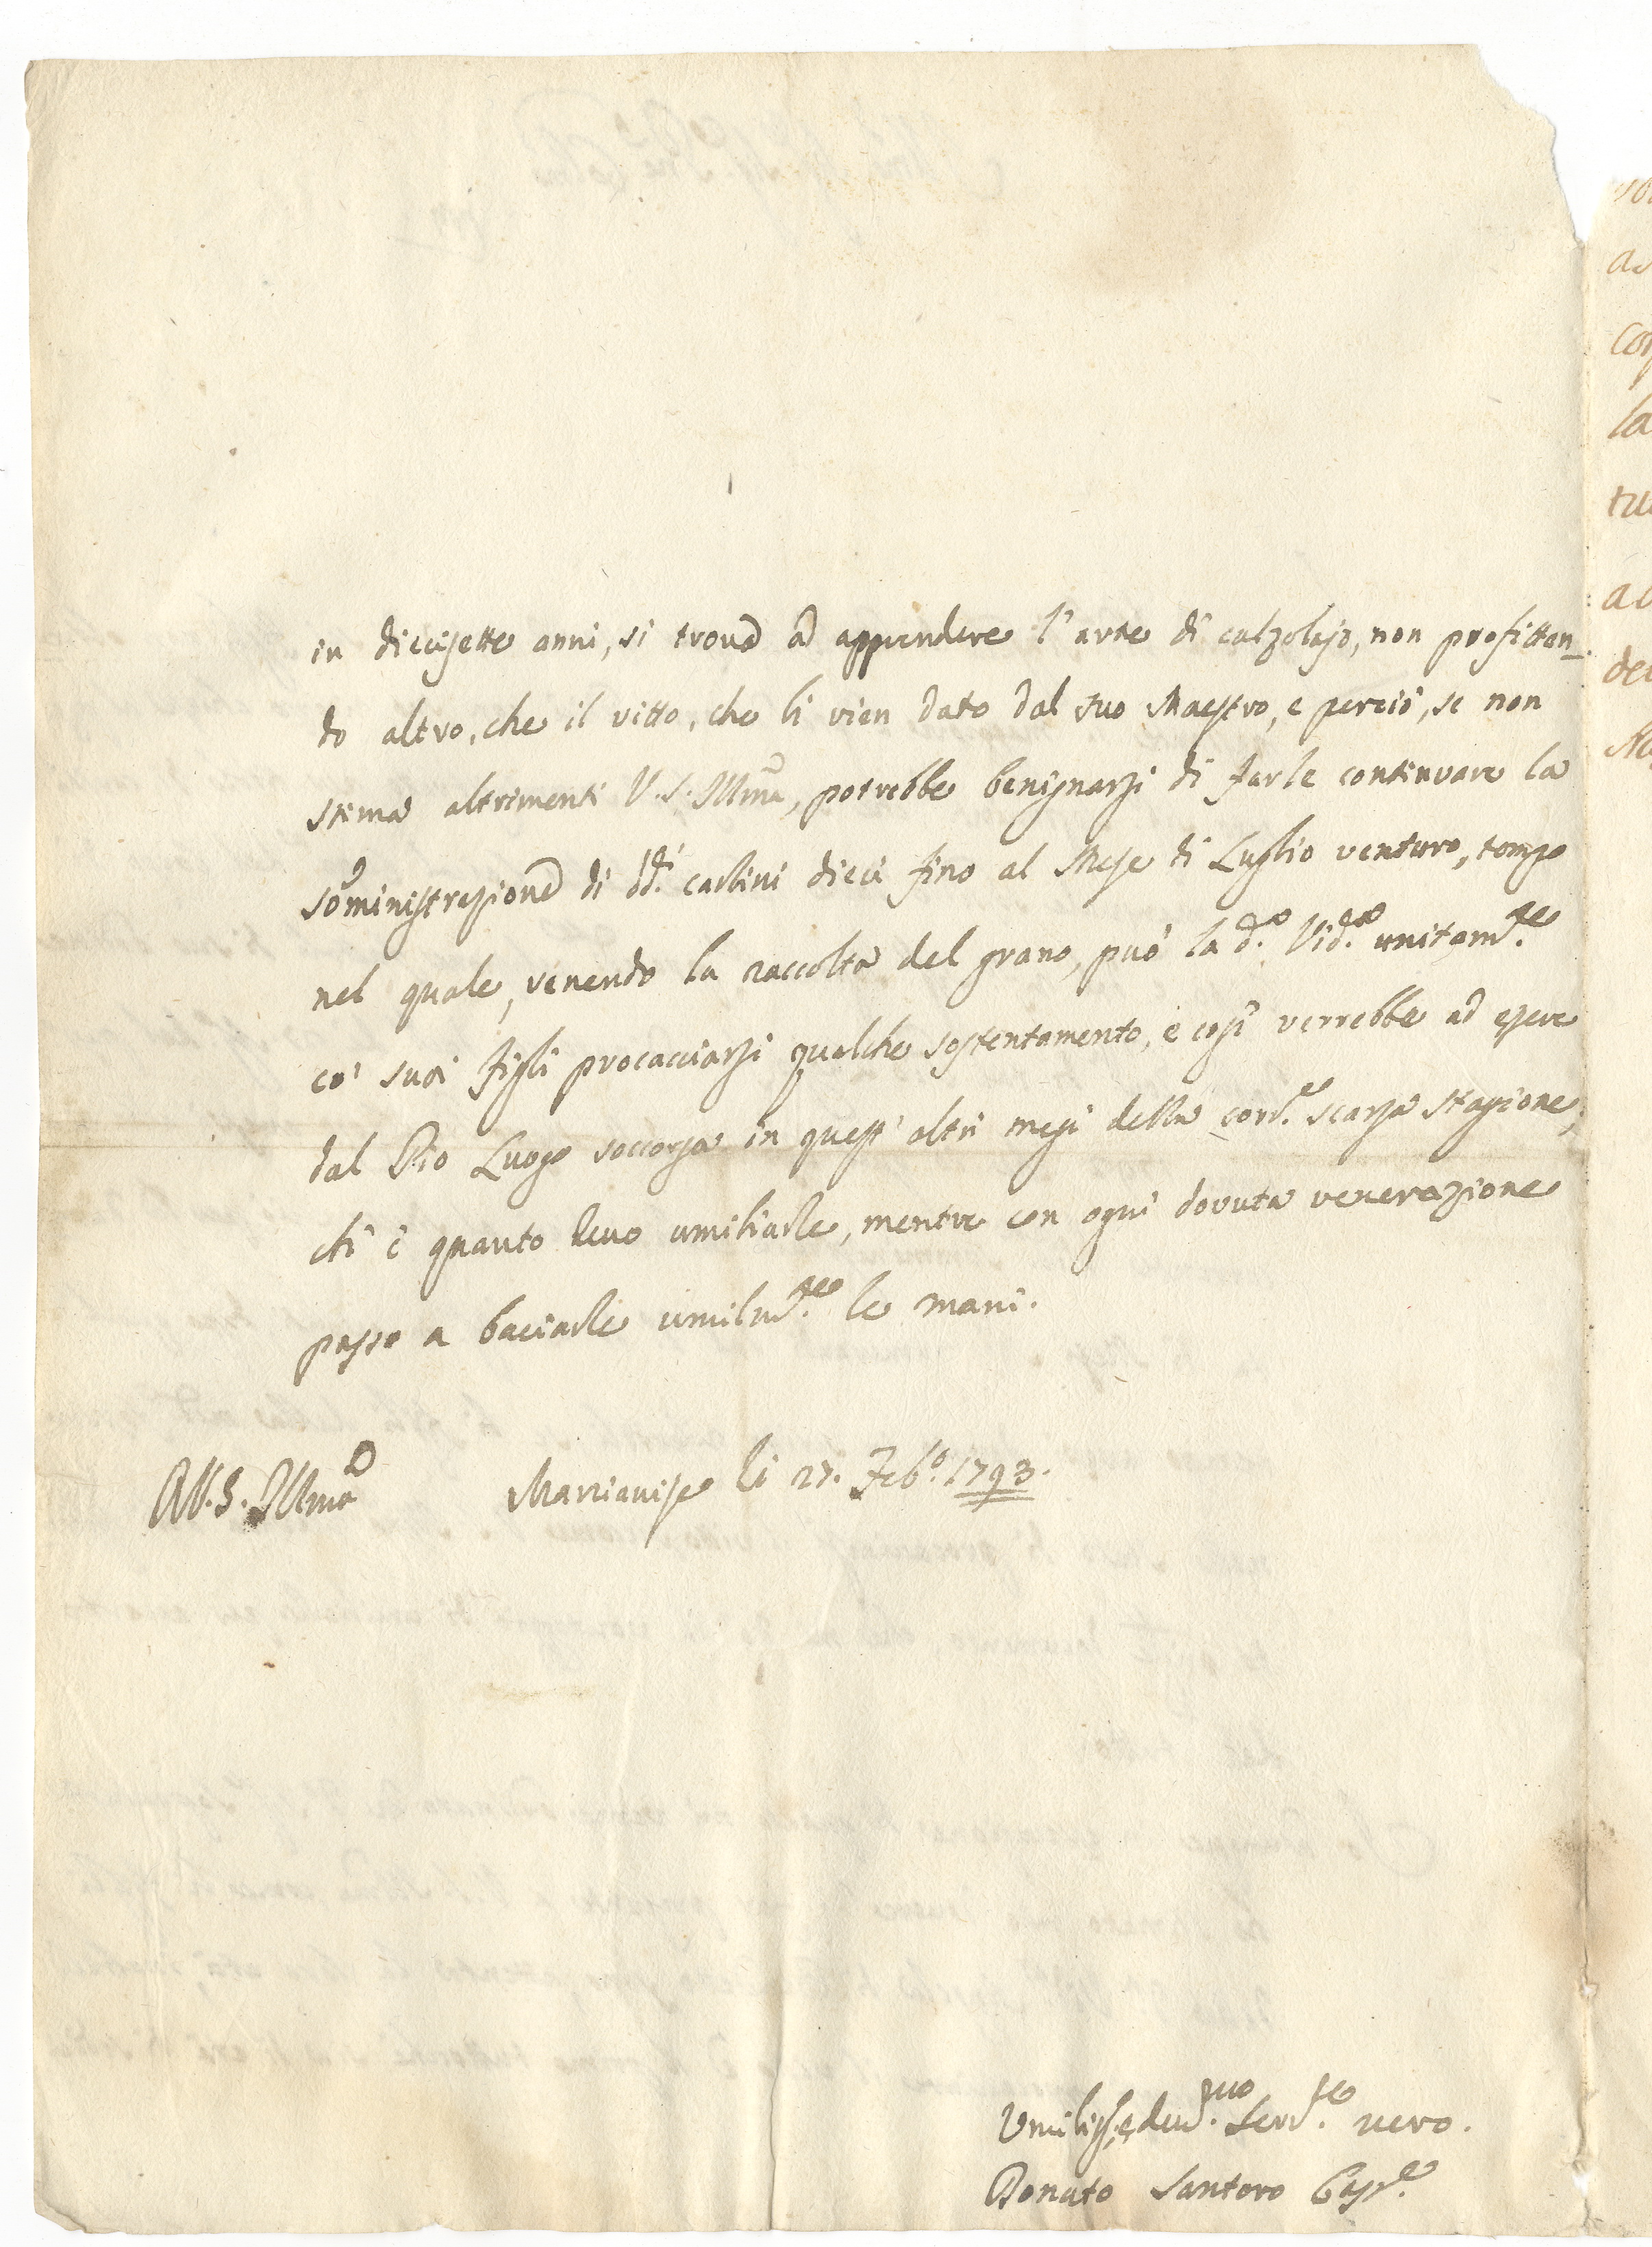 in diecisette anni, si trova ad apprendere l'arte di calzolajo, non profittan_
do altro, che il vitto, che li vien dato dal suo Maestro, e perciò, se non
stima altrimenti V. S. Illma, potrebbe benignarsi di farle continuare la
somministrazione di dd.i carlini dieci fino al Mese di Luglio venturo, tempo
nel quale, venendo la raccolta del grano, può la d.a Vid.a unitam.te
co' suoi figli procacciarsi qualche sostentamento, e così verrebbe ad essere
dal Pio Luogo soccorsa in quest' altri mesi della corr.e scarsa stagione,
ch'è quanto devo umiliarle, mentre con ogni dovuta venerazione
passo a baciarle umilm.te le mani.
V. S. Illma
Marzianise li 27. Feb.o 1793.
Umiliss. e dev.mo Serv.e vero.
Donato Santoro